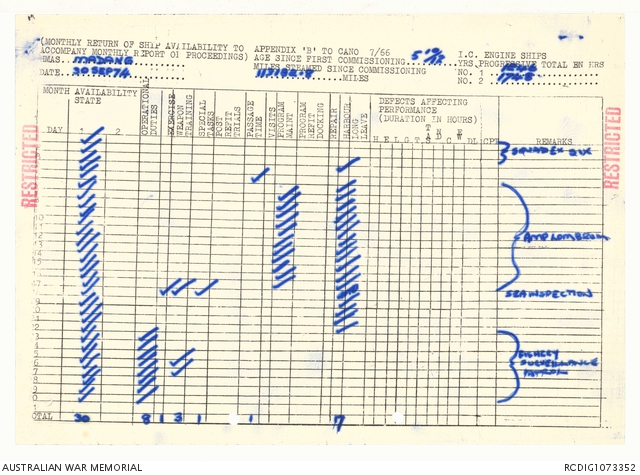 (MONTHLY RETURN OF SHIP AVAILABILITY TO APPENDIX 'B' TO CANO 7/66
ACCOMPANY MONTHLY REPORT OF PROCEEDINGS) AGE SINCE FIRST COMMISSIONING YRS.
I.C. ENGINE SHIPS
PROGRESSIVE TOTAL EN HRS
HMAS. MADANG
MILES STEAMED SINCE COMMISSIONING
NO. 1
DATE. 30 SEP 74
MILES
NO. 2
MONTH AVAILABILITY STATE
DAY 1 2
OPERATIONAL DUTIES
EXERCISE
WEAPON TRAINING
SPECIAL TASKS
POST REFIT TRIALS
PASSAGE TIME
VISITS
PROGRAM MAINT
PROGRAM REFIT DOCKING
REPAIR
HARBOUR LONG LEAVE
DEFECTS AFFECTING PERFORMANCE (DURATION IN HOURS)
REMARKS
RESTRICTED
RESTRICTED
AMP LOMBRUM
SEA INSPECTION
FISHERY SURVEILLANCE PATROL
TOTAL 30 8 1 3 1 1 7
AUSTRALIAN WAR MEMORIAL
RCDIG1073352